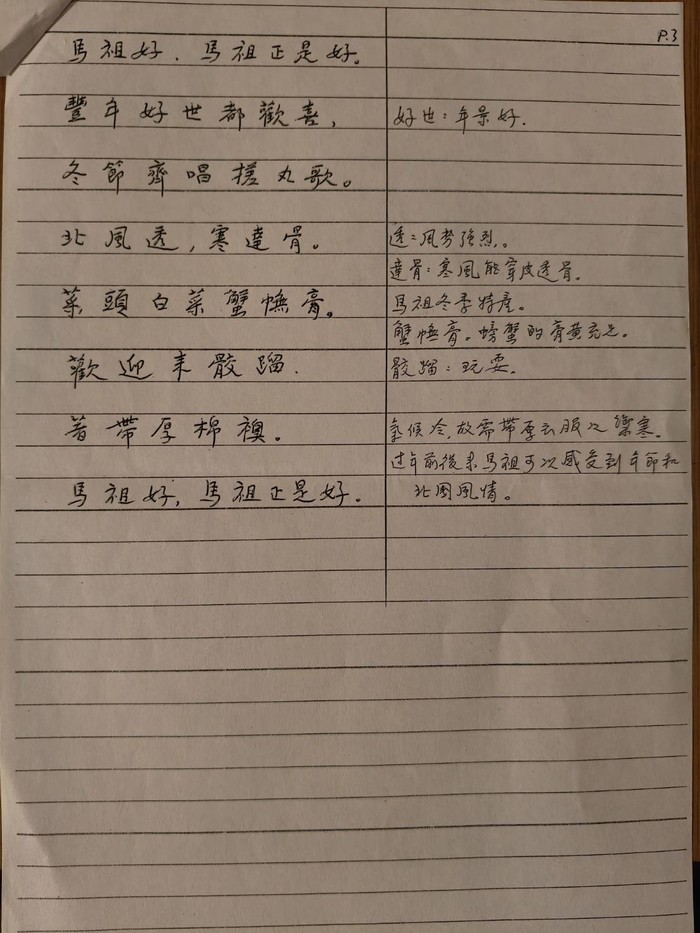 P.3
馬祖好．馬祖正是好。
豐年好世都歡喜，
好世：年景好．
冬節齊唱搓丸歌。
北風透，寒達骨。
透：風勢強烈。
達骨：寒風能穿皮透骨。
菜頭白菜蟹幠膏。
馬祖冬季特產。
蟹幠膏。螃蟹的膏黃充足。
歡迎來骹蹓．
骹蹓：玩耍。
著帶厚棉襖。
氣候冷，故需帶厚衣服以禦寒。
过年前後來馬祖可以感受到年節和
馬祖好，馬祖正是好．
北國風情。